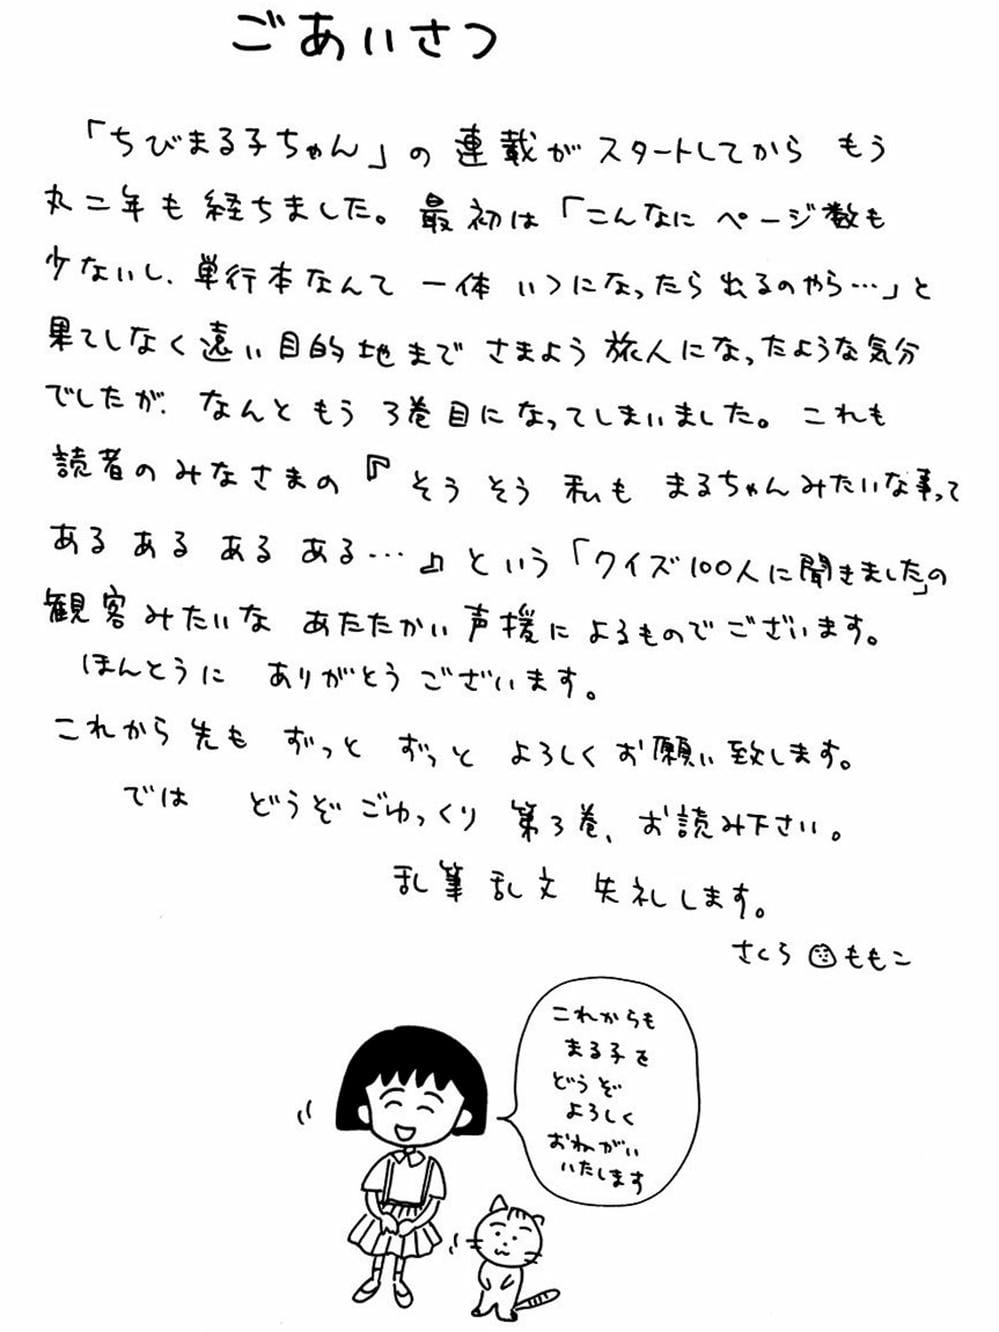 ごあいさつ
「ちびまる子ちゃん」の連載がスタートしてから もう
丸二年も経ちました。最初は「こんなに ページ数も
少ないし、単行本なんて 一体 いつになったら出るのやら…」と
果てしなく遠い目的地まで さまよう旅人になったような気分
でしたが、なんと もう 3巻目になってしまいました。これも
読者のみなさまの『そうそう 私も まるちゃんみたいな事って
ある ある ある ある…』という「クイズ100人に聞きました」の
観客みたいな あたたかい声援によるものでございます。
ほんとうに ありがとうございます。
これから先も ずっと ずっと よろしくお願い致します。
では どうぞごゆっくり 第3巻、お読み下さい。
乱筆乱文 失礼します。
さくらももこ
これからも
まる子を
どうぞ
よろしく
おねがい
いたします